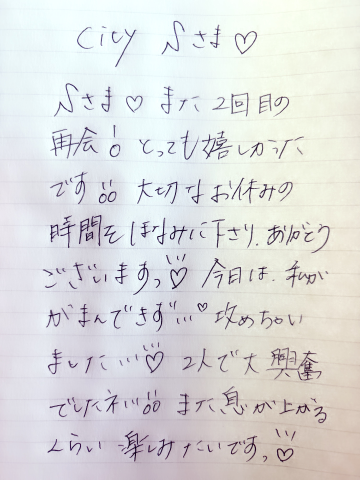 City Sさま♡
Sさま♡ また2回目の
再会!。とっても嬉しかった
です!!。。大切なお休みの
時間をほなみに下さり、ありがとう
ございますっ♡ 今日は、私が
がまんできず…♡攻めちゃい
ました…♡ 2人で大興奮
でしたネ!!。。また息が上がる
くらい楽しみたいですっ♡